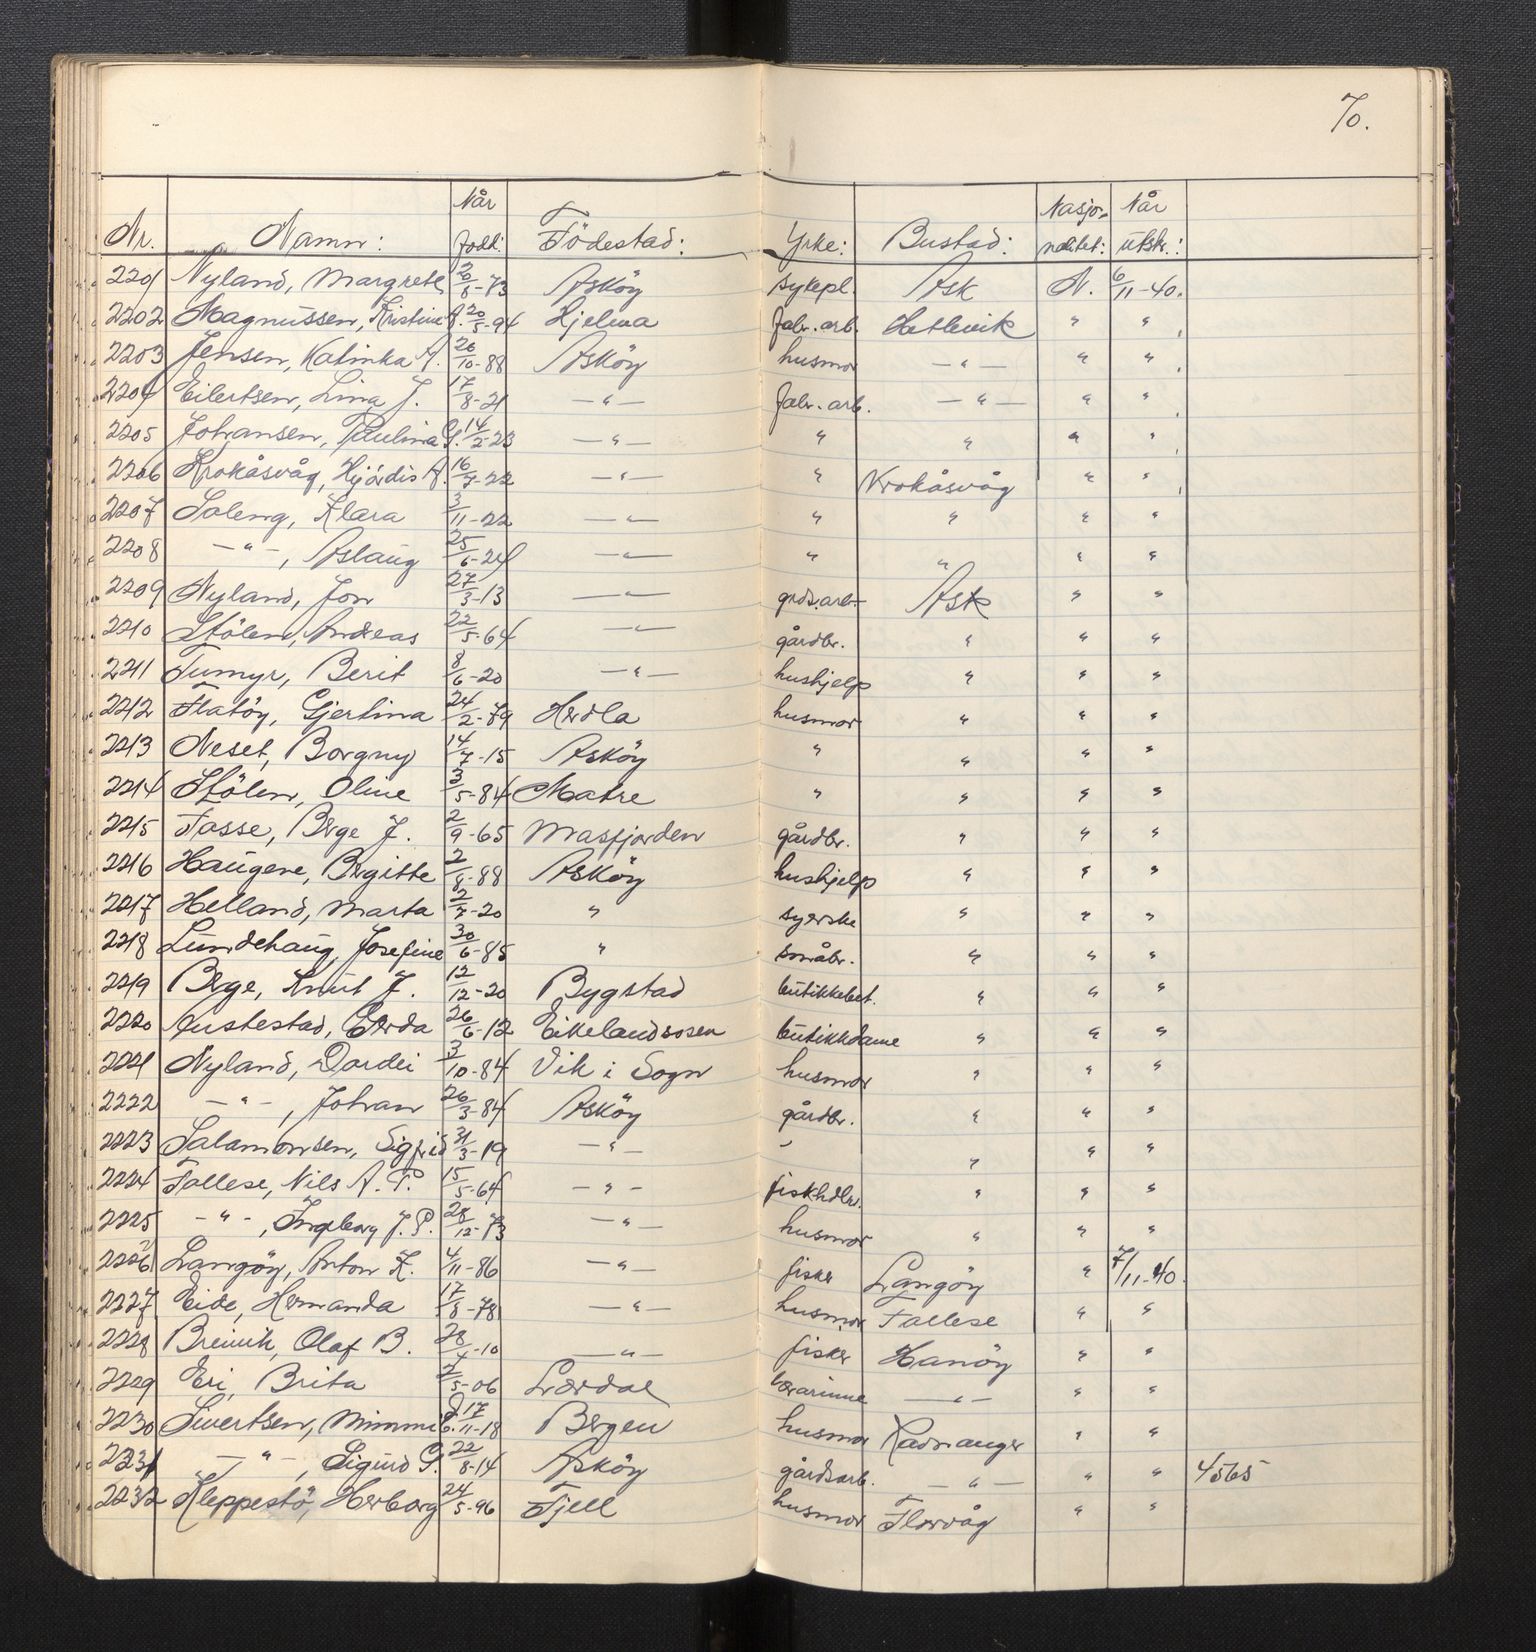 70.
Nr. Namn: Når född: Födestad: Yrke: Bustad: Nasjonalitet: Når utstr.:
2201 Nyland, Margrete 20/8-73 Asköy sykepl. Ask N. 6/11-40.
2202 Magnussen, Kristine J. 20/5-94 Hjelma fabr. arb. Hetlevik " "
2203 Jensen, Katinka A. 26/10-88 Asköy husmor —"— " "
2204 Eilertsen, Lina J. 17/8-21 —"— fabr. arb. —"— " "
2205 Johansen, Paulina G. 14/2-23 —"— " " " "
2206 Krokåsvåg, Hjördis A. 16/7-22 —"— " Krokåsvåg " "
2207 Soleng, Klara 3/11-22 —"— " " " "
2208 —"—, Aslaug 25/6-24 —"— " " " "
2209 Nyland, Jon 27/3-13 —"— grds.arb. Ask " "
2210 Stölen, Andreas 22/5-64 —"— gårdbr. " " "
2211 Tumyr, Berit 8/6-20 —"— hushjelp " " "
2212 Flatöy, Gjertina 24/2-79 Herdla husmor " " "
2213 Neset, Borgny 14/7-15 Asköy " " " "
2214 Stölen, Oline 3/5-84 Matre " " " "
2215 Fosse, Berge J. 2/9-65 Masfjorden gårdbr. " " "
2216 Haugene, Birgitte 2/8-88 Asköy hushjelp " " "
2217 Helland, Marta 2/7-20 " syerske " " "
2218 Lundehaug, Josefine 30/6-85 " småbr. " " "
2219 Berge, Knut J. 12/12-20 Bygstad butikkbet. " " "
2220 Austestad, Gerda 26/6-12 Eikelandsosen butikkdame " " "
2221 Nyland, Dordei 3/10-84 Vik i Sogn husmor " " "
2222 —"—, Johan 26/3-84 Asköy gårdbr. " " "
2223 Salamonsen, Sigfrid 31/3-19 —"— " " " "
2224 Follese, Nils A. P. 15/5-64 —"— fiskhdlr. " " "
2225 —"—, Ingeborg J. P. 28/12-73 —"— husmor " " "
2226 Langöy, Anton K. 4/11-86 —"— fisker Langöy " 7/11-40.
2227 Eide, Hermanda 17/8-78 —"— husmor Follese " "
2228 Breivik, Olaf B. 28/4-10 —"— fisker Hanöy " "
2229 Eri, Brita 2/5-06 Lærdal lærarinne —"— " "
2230 Sivertsen, Mimmi 17/11-18 Bergen husmor Ravnanger " "
2231 —"—, Sigurd G. 22/8-14 Asköy gårdsarb. —"— " " 4565
2232 Kleppestö, Herborg 24/5-96 Fjell husmor Florvåg " "